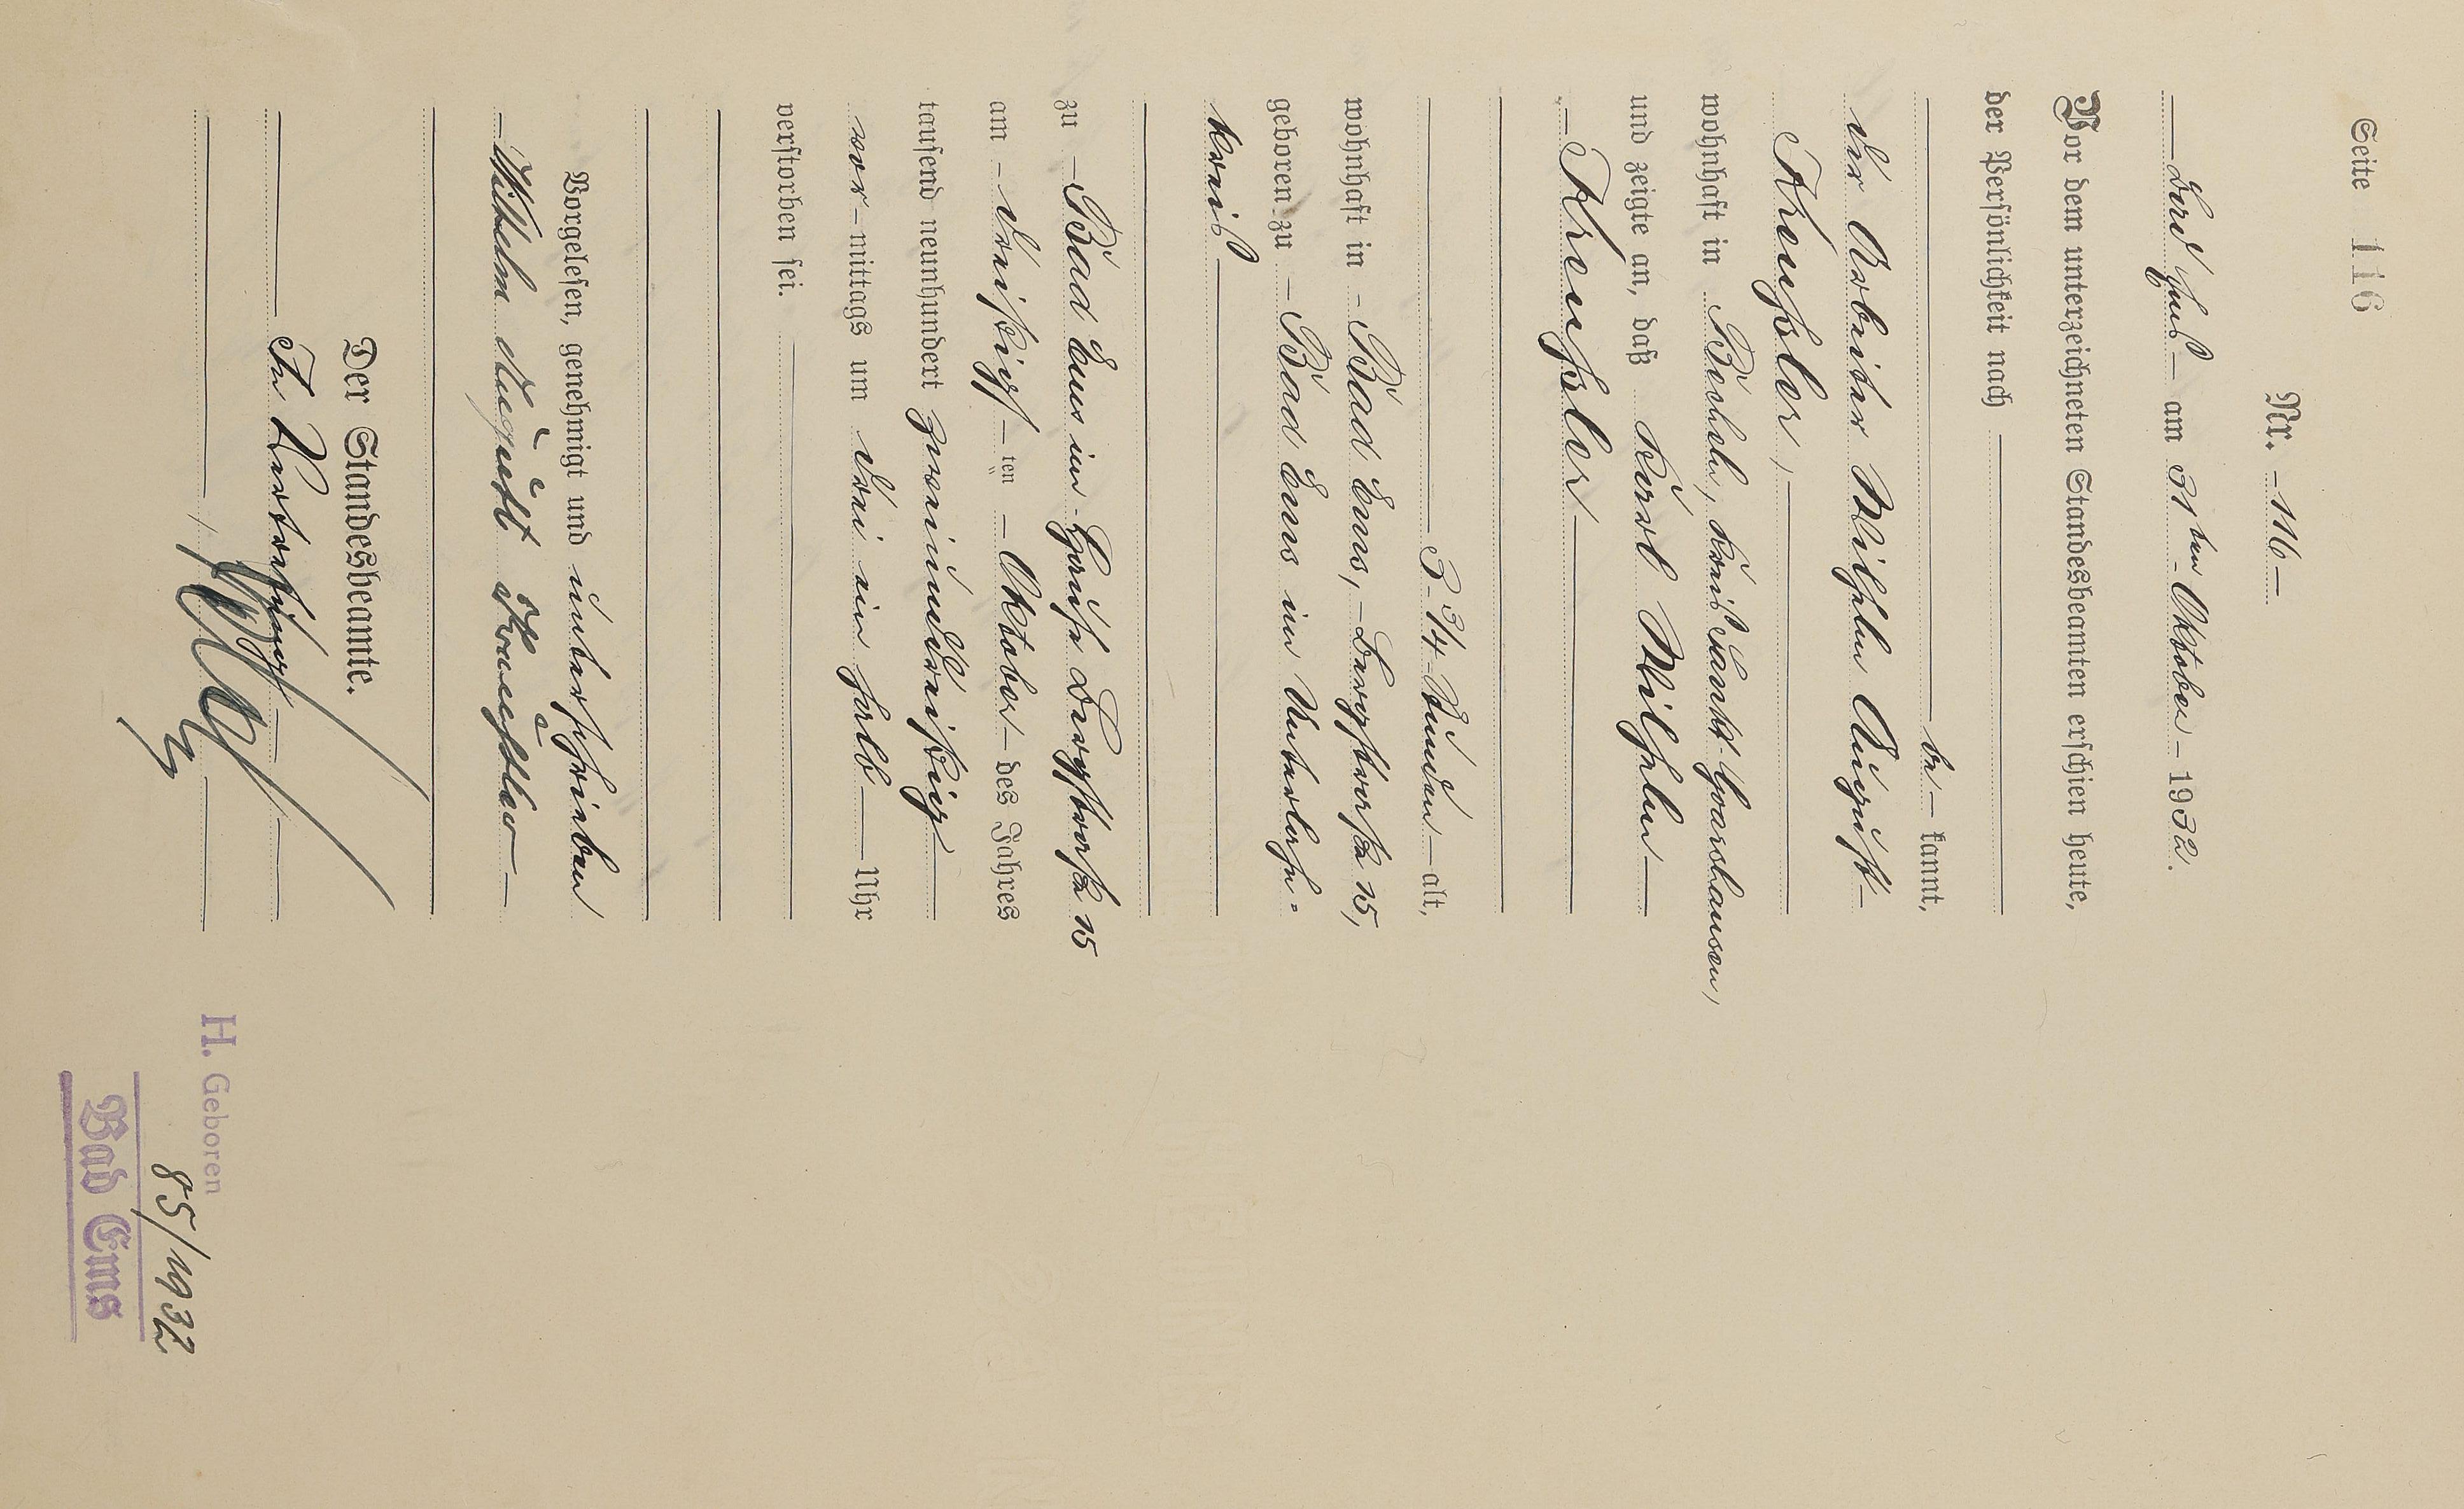 Seite 116
Nr. - 116 -
Bad Ems - am 31ten Oktober - 1932.
Vor dem unterzeichneten Standesbeamten erschien heute,
der Persönlichkeit nach
be - kannt,
der Arbeiter Wilhelm August -
Kreußler,
wohnhaft in Bechele, Kreis Sankt Goarshausen,
und zeigte an, daß Karl Wilhelm
- Kreußler
3 3/4 - Stunden - alt,
wohnhaft in - Bad Ems, -
geboren zu - Bad Ems im Unterlahn-
kreis
zu - Bad Ems im Hause 15
am - dreißig - ten - Oktober - des Jahres
tausend neunhundert zweiunddreißig
vor - mittags um drei ein halb Uhr
verstorben sei.
Vorgelesen, genehmigt und unterschrieben
- Wilhelm August Kreußler -
Der Standesbeamte.
In Vertretung
H. Geboren
85/1932
Bad Ems